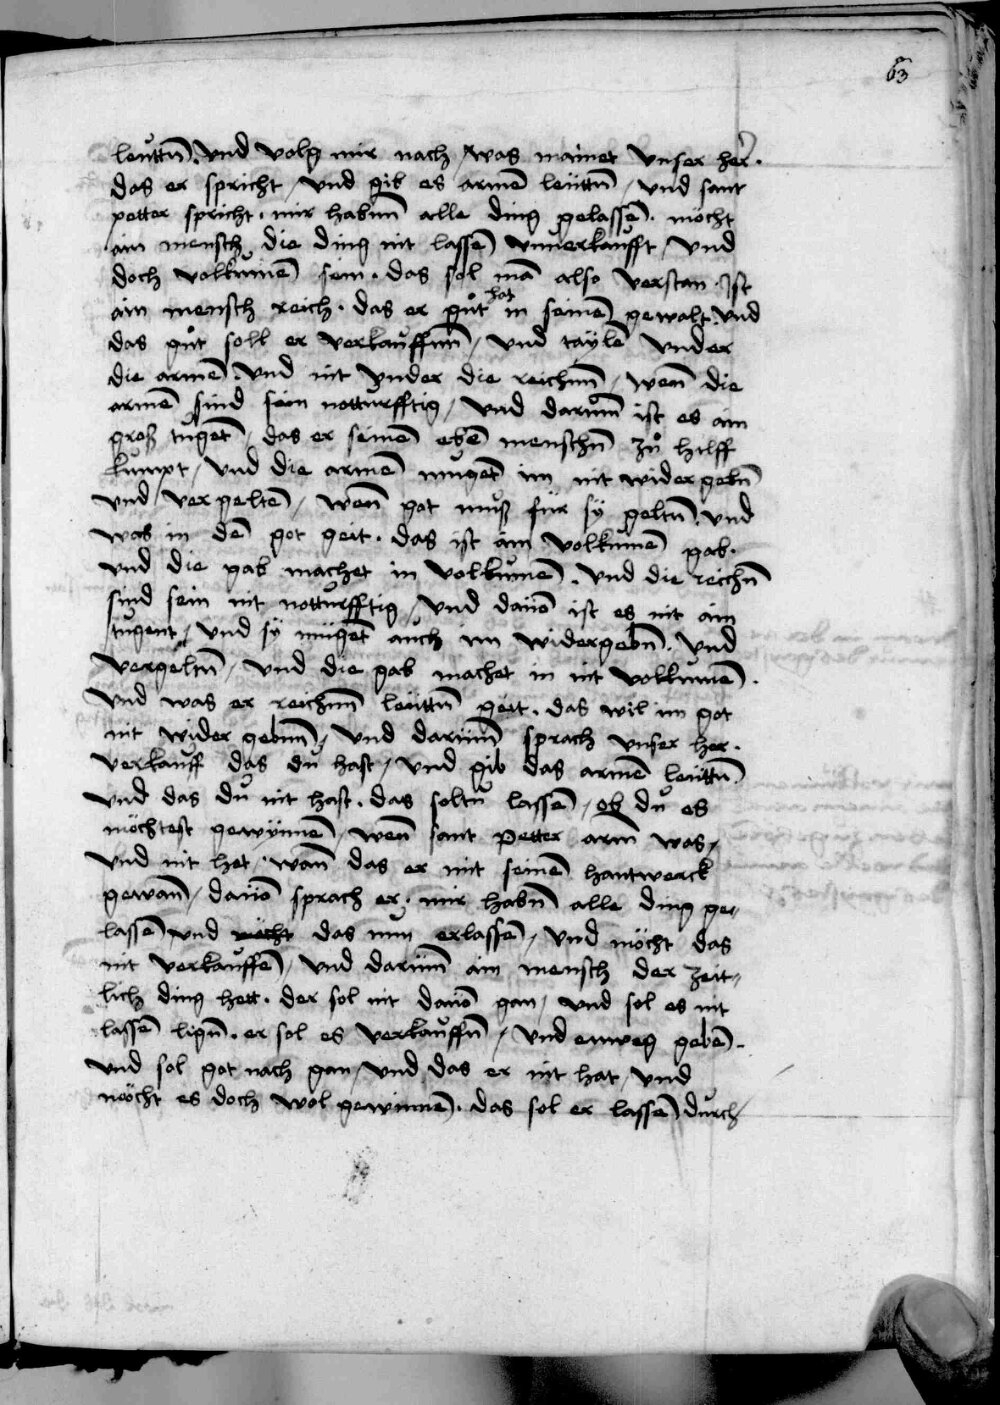 63
leuttn̄. Und volg mir nach / was mainet unser her̄.
das er spricht / und gib es armē leüttn̄ / und sant
petter spricht. mir habnn̄ alle ding gelassē. möcht
ain mensch die ding nit lassē unuerkaufft / und
doch volkumē sein. das sol mā also verstan. Ist
ain mensch reich. das er gůt hat in seinē gewalt. und
das gůt soll er verkauffnn̄ / und taylē under
die armē. und nit under die reichnn̄ / wen̄ die
armē sind sein notturfftig / und darum̄ ist es ain
groß tugēt / das er seinē ebē menschn̄ zů hilff
kumpt / und die armē mugēt im nit wider gebn̄
und vergeltē / wen̄ got muß für sy geltn̄. und
was in dē got geit. das ist ain volkumē gab.
und die gab machet in volkumē. und die reichn̄
sind sein nit notturfftig / und dauō ist es nit ain
tugent / und sy mügēt auch im widergebn̄. und
vergeltn̄ / und die gab machet in nit volkumē.
und was er reichnn̄ leüttn̄ geit. das wil im got
nit wider gebnn̄ / und darüm̄ sprach unser her.
verkauff das du hast / und gib das armē leüttn̄
und das du nit hast. das soltu lassē / ob du es
möchtest gewynnē / wen̄ sant petter arm was /
und nit het. wan̄ das er mit seinē hantwerck
gewan̄ / dauō sprach er. mir habn̄ alle ding ge-
lassē und möcht das nun erlassē / und möcht das
nit verkauffē / und darüm̄ ain mensch der zeit-
lich ding hett. der sol nit dauō gan / und sol es nit
lassē lign̄. er sol es verkauffn̄ / und enweg gebē.
und sol got nach gan / und das er nit hat / und
möcht es doch wol gewinnē. das sol er lassē durch